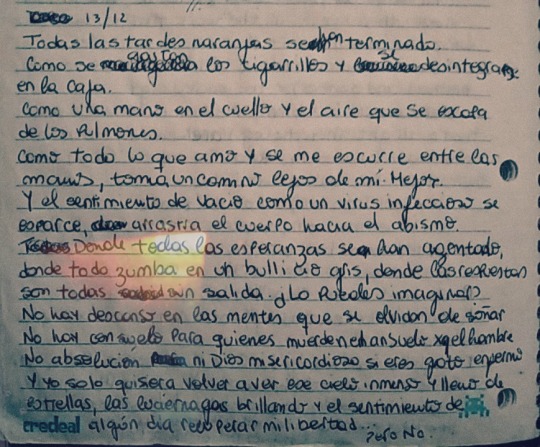 13/12
Todas las tardes naranjas se han terminado.
Como se gastan los cigarrillos y se desintegran
en la caja.
Como una mano en el cuello y el aire que se escapa
de los pulmones.
Como todo lo que amo y se me escurre entre las
manos, toma un camino lejos de mí. Mejor.
Y el sentimiento de vacío como un virus infeccioso se
esparce, arrastra el cuerpo hacia el abismo.
Donde todas las esperanzas se han agentado,
donde todo zumba en un bullicio gris, donde las respuestas
son todas sin salida. ¿Lo puedes imaginar?
No hay descanso en las mentes que se olvidan de soñar
No hay consuelo para quienes muerden el ansuelo x el hambre
No absolución ni Dios misericordioso si eres goto enfermo
Y yo solo quisera volver a ver ese cielo inmenso y lleno de
estrellas, las luciernagas brillando y el sentimiento de
credeal algún día recuperar mi libertad...
pero No